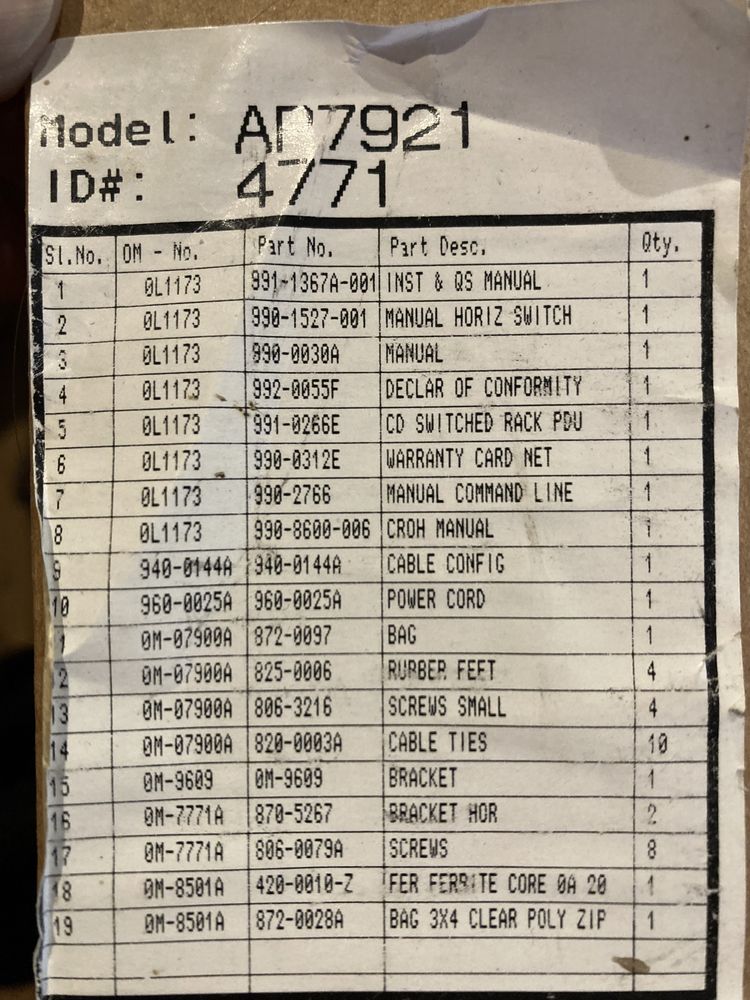 Model: AP7921
ID#: 4771
Sl.No. OM - No. Part No. Part Desc. Qty.
1 0L1173 991-1367A-001 INST & QS MANUAL 1
2 0L1173 990-1527-001 MANUAL HORIZ SWITCH 1
3 0L1173 990-0030A MANUAL 1
4 0L1173 992-0055F DECLAR OF CONFORMITY 1
5 0L1173 991-0266E CD SWITCHED RACK PDU 1
6 0L1173 990-0312E WARRANTY CARD NET 1
7 0L1173 990-2766 MANUAL COMMAND LINE 1
8 0L1173 990-8600-006 CROH MANUAL 1
9 940-0144A 940-0144A CABLE CONFIG 1
10 960-0025A 960-0025A POWER CORD 1
11 0M-07900A 872-0097 BAG 1
12 0M-07900A 825-0006 RUBBER FEET 4
13 0M-07900A 806-3216 SCREWS SMALL 4
14 0M-07900A 820-0003A CABLE TIES 10
15 0M-9609 0M-9609 BRACKET 1
16 0M-7771A 870-5267 BRACKET HOR 2
17 0M-7771A 806-0079A SCREWS 8
18 0M-8501A 420-0010-Z FER FERRITE CORE 0A 20 1
19 0M-8501A 872-0028A BAG 3X4 CLEAR POLY ZIP 1